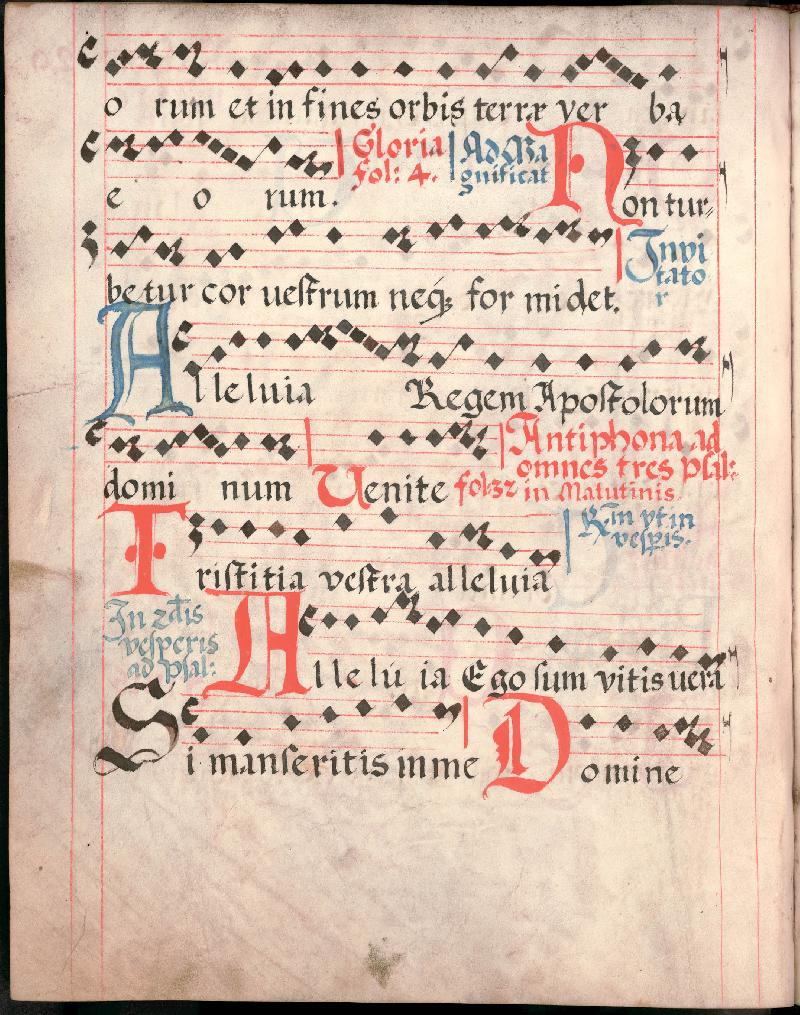 o rum et in fines orbis terræ ver ba
e o rum. Gloria fol: 4. Ad Ma gnificat Non tur-
be tur cor vestrum neq; for midet. Invi tato r
Alleluia Regem Apostolorum
domi num Venite fol:32 Antiphona ad omnes tres psal: in Matutinis
Tristitia vestra alleluia R. in vt in vesp̄is.
In 2dis vesperis ad psal: Allelu ia Ego sum vitis vera
Si manseritis in me Domine